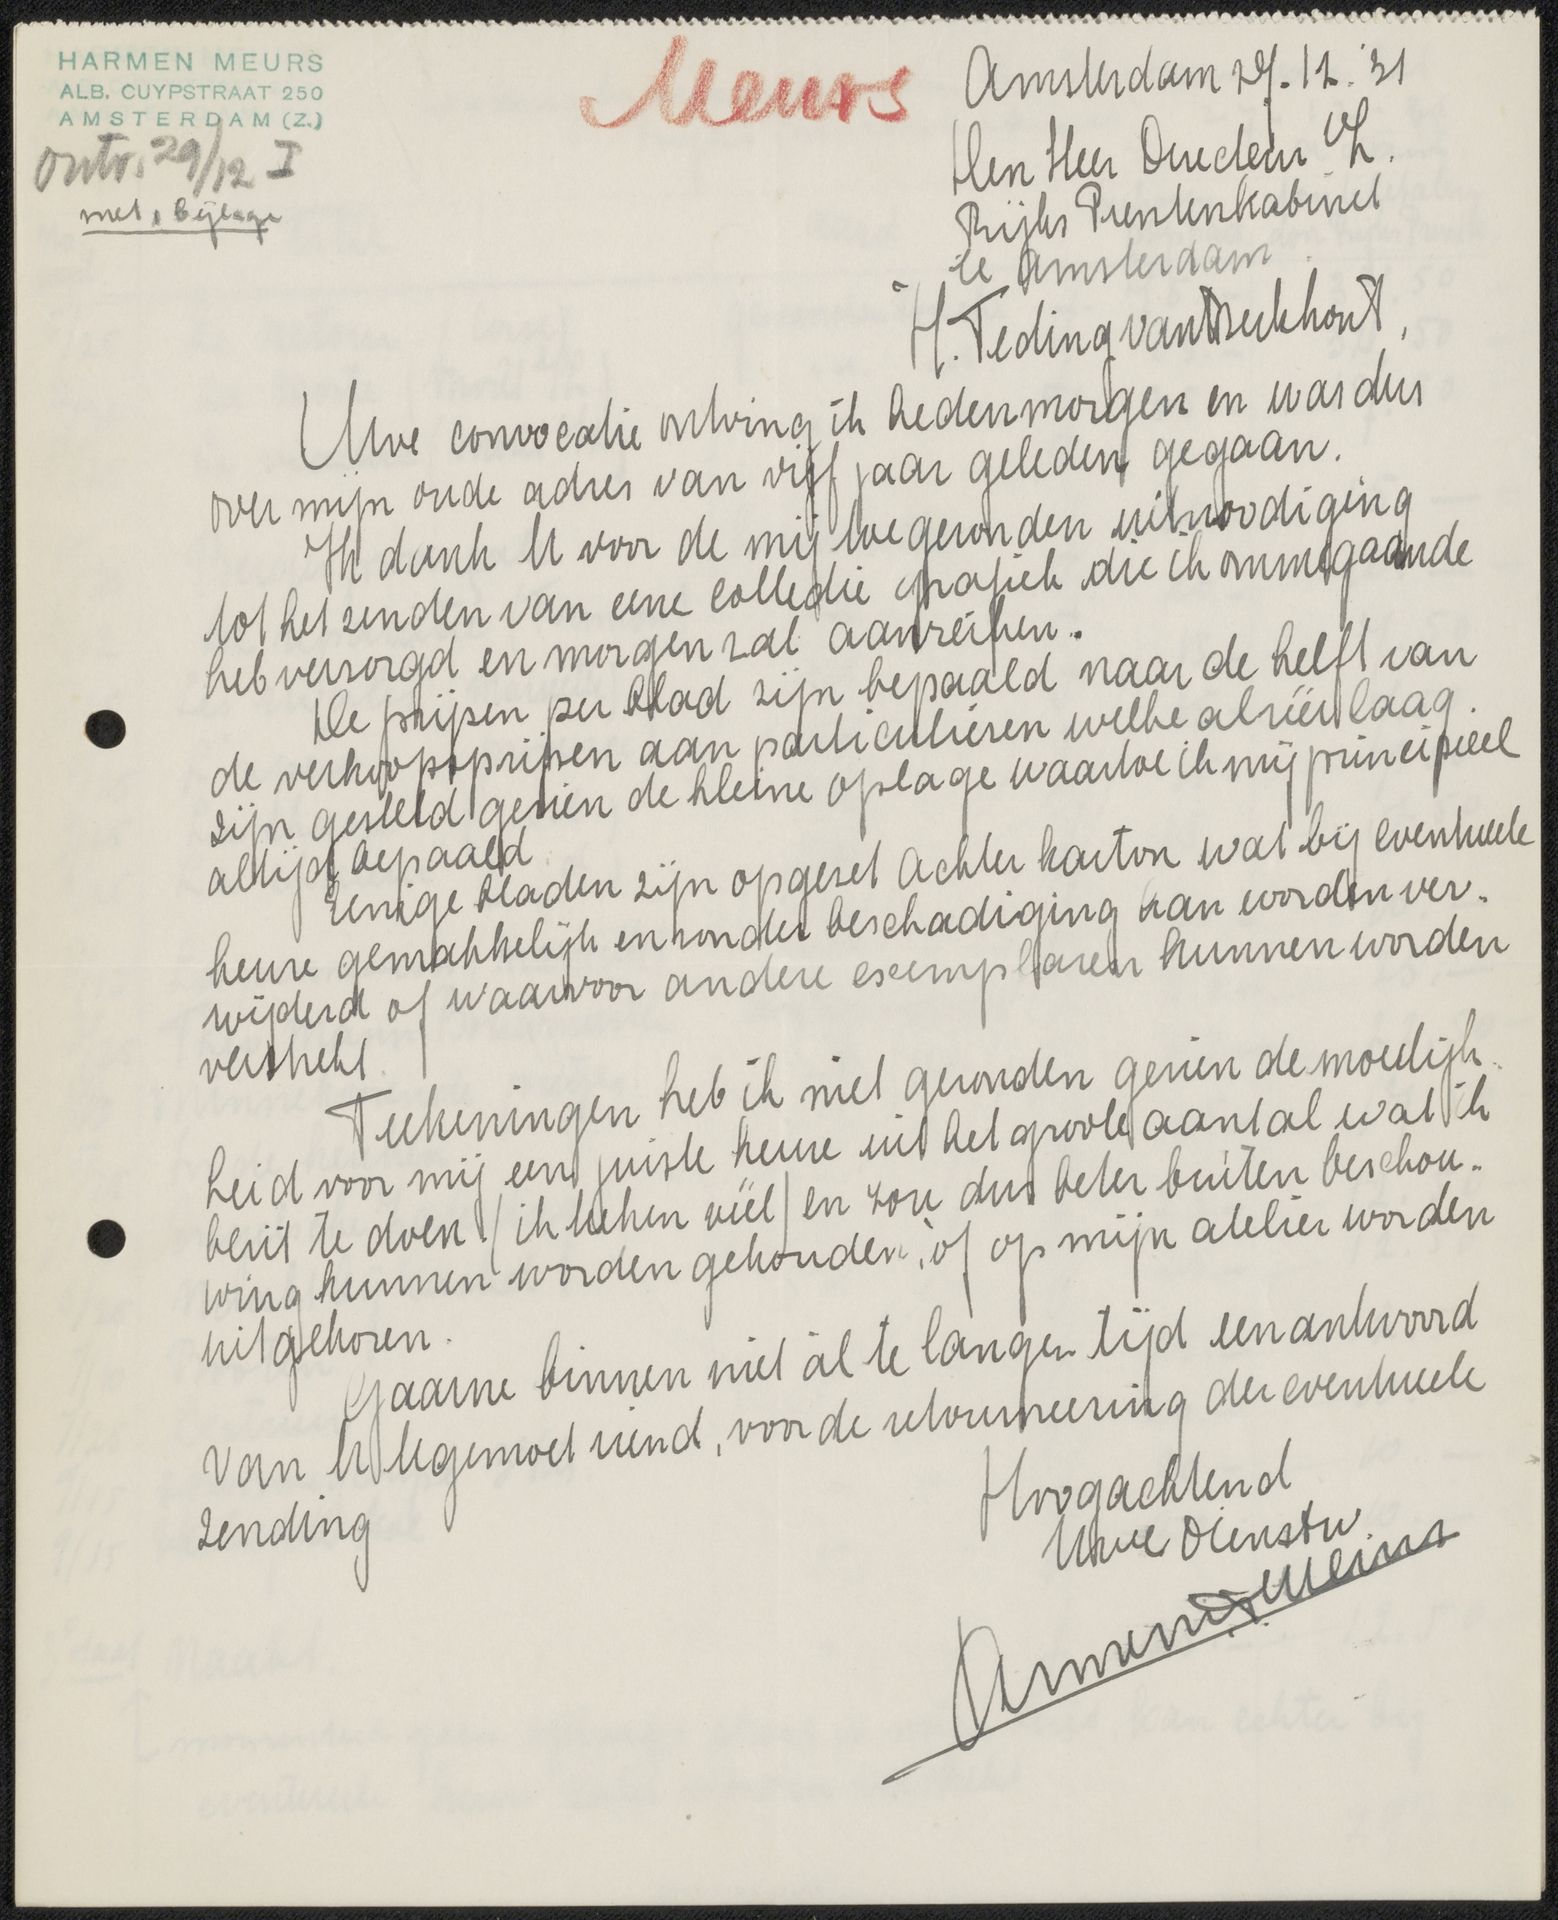 HARMEN MEURS
ALB. CUYPSTRAAT 250
AMSTERDAM (Z.)
Ontv. 29/12 I
met 1 bijlage
Meurs
Amsterdam 12. '31
Den Heer Directeur v/h.
Rijks Prentenkabinet
te Amsterdam
H. Teding van Berkhout,
Uwe convocatie ontving ik hedenmorgen en was dus
over mijn oude adres van vijf jaar geleden gegaan.
Ik dank U voor de mij toegezonden uitnoodiging
tot het zenden van eene collectie grafiek die ik ommegaande
heb verzorgd en morgen zal aanreiken.
De prijzen per blad zijn bepaald naar de helft van
de verkoopsprijzen aan particulieren welke alreeds laag
zijn gesteld gezien de kleine oplage waartoe ik mij principieel
altijd bepaald
Eenige bladen zijn opgezet achter karton wat bij eventueele
keuze gemakkelijk en zonder beschadiging kan worden ver-
wijderd of waarvoor andere exemplaren kunnen worden
verstrekt.
Teekeningen heb ik niet gezonden gezien de moeilijk-
heid voor mij een juiste keuze uit het groote aantal wat ik
bezit te doen (ik teeken véél) en zou dus beter buiten beschou-
wing kunnen worden gehouden, òf op mijn atelier worden
uitgekozen.
Gaarne binnen niet ál te langen tijd een antwoord
van U tegemoet ziend, voor de retourneering der eventueele
zending
Hoogachtend
Uwe Dienstw
Harmen Meurs